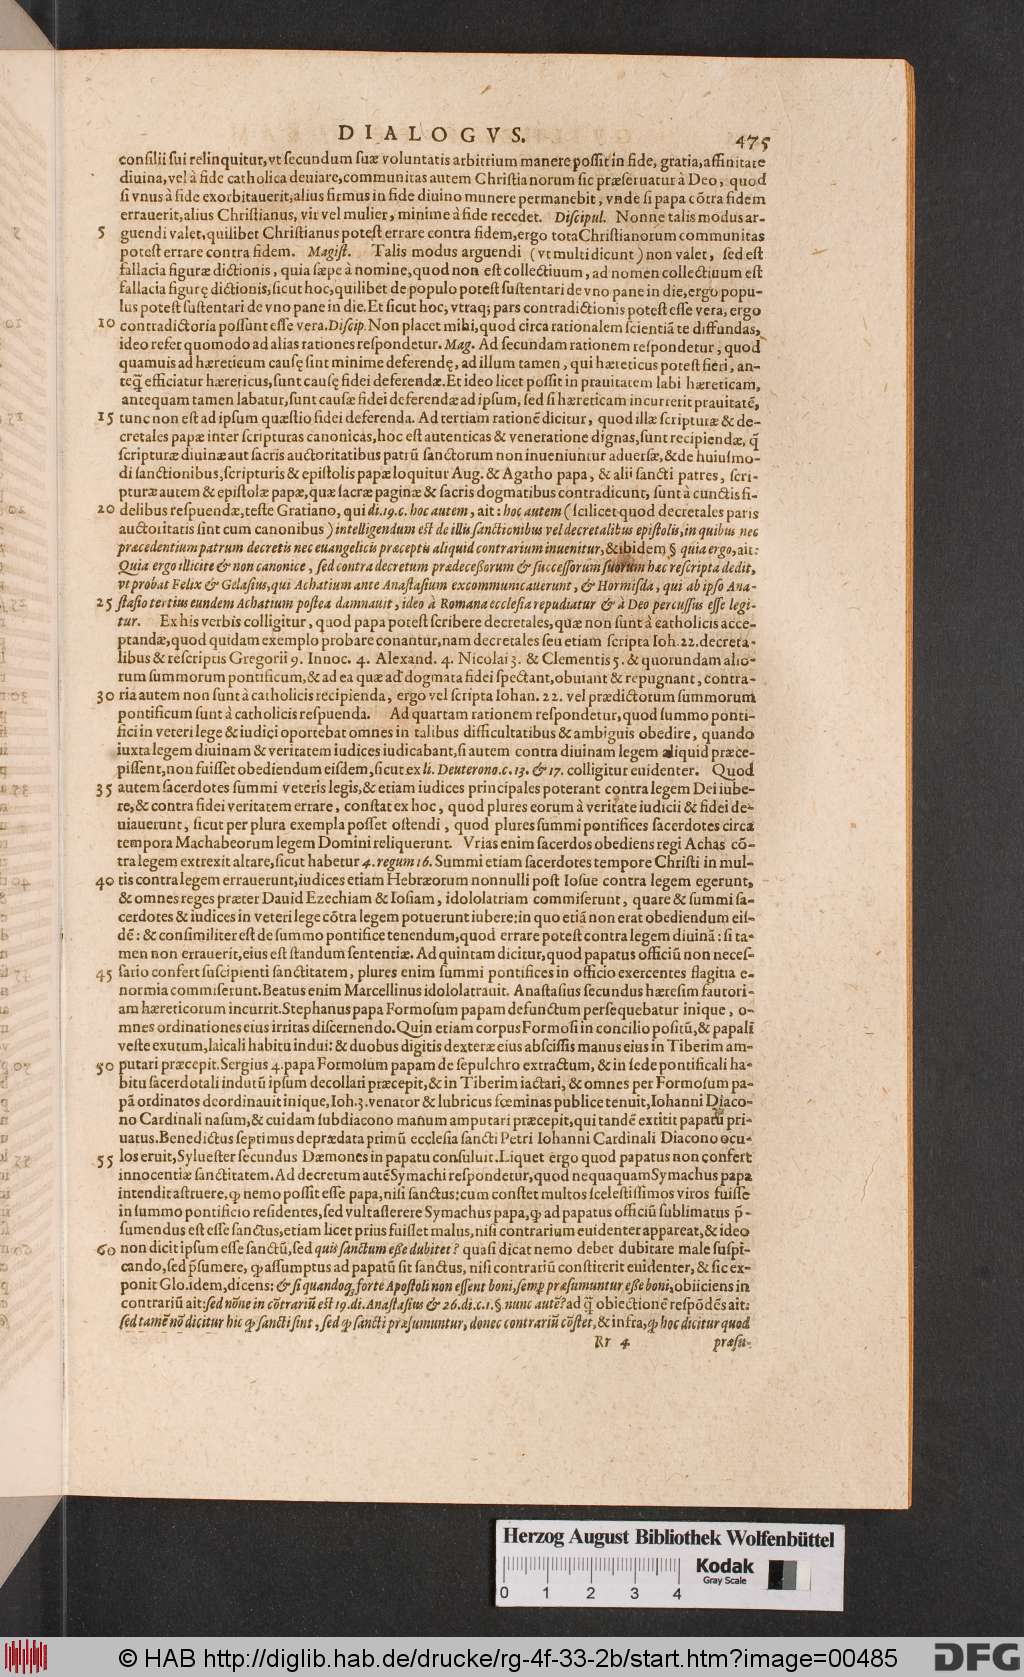 DIALOGVS. 475
consilii sui relinquitur, vt secundum suæ voluntatis arbitrium manere possit in fide, gratia, affinitate
diuina, vel à fide catholica deuiare, communitas autem Christianorum sic præseruatur à Deo, quod
si vnus à fide exorbitauerit, alius firmus in fide diuino munere permanebit, vnde si papa cõtra fidem
errauerit, alius Christianus, vir vel mulier, minime à fide recedet. Discipul. Nonne talis modus ar-
5 guendi valet, quilibet Christianus potest errare contra fidem, ergo tota Christianorum communitas
potest errare contra fidem. Magist. Talis modus arguendi (vt multi dicunt) non valet, sed est
fallacia figuræ dictionis, quia sæpe à nomine, quod non est collectiuum, ad nomen collectiuum est
fallacia figurę dictionis, sicut hoc, quilibet de populo potest sustentari de vno pane in die, ergo popu-
lus potest sustentari de vno pane in die. Et sicut hoc, vtraq; pars contradictionis potest esse vera, ergo
10 contradictoria possunt esse vera. Discip. Non placet mihi, quod circa rationalem scientiã te diffundas,
ideo refer quomodo ad alias rationes respondetur. Mag. Ad secundam rationem respondetur, quod
quamuis ad hæreticum causę sint minime deferendę, ad illum tamen, qui hæreticus potest fieri, an-
teq̃ efficiatur hæreticus, sunt causę fidei deferendæ. Et ideo licet possit in prauitatem labi hæreticam,
antequam tamen labatur, sunt causæ fidei deferendæ ad ipsum, sed si hæreticam incurrerit prauitatẽ,
15 tunc non est ad ipsum quæstio fidei deferenda. Ad tertiam rationẽ dicitur, quod illæ scripturæ & de-
cretales papæ inter scripturas canonicas, hoc est autenticas & veneratione dignas, sunt recipiendæ, q̃
scripturæ diuinæ aut sacris auctoritatibus patrũ sanctorum non inueniuntur aduersæ, & de huiusmo-
di sanctionibus, scripturis & epistolis papæ loquitur Aug. & Agatho papa, & alii sancti patres, scri-
pturæ autem & epistolæ papæ, quæ sacræ paginæ & sacris dogmatibus contradicunt, sunt à cunctis fi-
20 delibus respuendæ, teste Gratiano, qui di. 19. c. hoc autem, ait: hoc autem (scilicet quod decretales paris
auctoritatis sint cum canonibus) intelligendum est de illis sanctionibus vel decretalibus epistolis, in quibus nec
præcedentium patrum decretis nec euangelicis præceptis aliquid contrarium inuenitur, & ibidem § quia ergo, ait:
Quia ergo illicite & non canonice, sed contra decretum prædecessorum & successorum suorum hæc rescripta dedit,
vt probat Felix & Gelasius, qui Achatium ante Anastasium excommunicauerunt, & Hormisda, qui ab ipso Ana-
25 stasio tertius eundem Achatium postea damnauit, ideo à Romana ecclesia repudiatur & à Deo percussus esse legi-
tur. Ex his verbis colligitur, quod papa potest scribere decretales, quæ non sunt à catholicis acce-
ptandæ, quod quidam exemplo probare conantur, nam decretales seu etiam scripta Ioh. 22. decreta-
libus & rescriptis Gregorii 9. Innoc. 4. Alexand. 4. Nicolai 3. & Clementis 5. & quorundam alio-
rum summorum pontificum, & ad ea quæ ad dogmata fidei spectant, obuiant & repugnant, contra-
30 ria autem non sunt à catholicis recipienda, ergo vel scripta Iohan. 22. vel prædictorum summorum
pontificum sunt à catholicis respuenda. Ad quartam rationem respondetur, quod summo ponti-
fici in veteri lege & iudici oportebat omnes in talibus difficultatibus & ambiguis obedire, quando
iuxta legem diuinam & veritatem iudices iudicabant, si autem contra diuinam legem aliquid præce-
pissent, non fuisset obediendum eisdem, sicut ex li. Deuterono. c. 13. & 17. colligitur euidenter. Quod
35 autem sacerdotes summi veteris legis, & etiam iudices principales poterant contra legem Dei iube-
re, & contra fidei veritatem errare, constat ex hoc, quod plures eorum à veritate iudicii & fidei de-
uiauerunt, sicut per plura exempla posset ostendi, quod plures summi pontifices sacerdotes circa
tempora Machabeorum legem Domini reliquerunt. Vrias enim sacerdos obediens regi Achas cõ-
tra legem extrexit altare, sicut habetur 4. regum 16. Summi etiam sacerdotes tempore Christi in mul-
40 tis contra legem errauerunt, iudices etiam Hebræorum nonnulli post Iosue contra legem egerunt,
& omnes reges præter Dauid Ezechiam & Iosiam, idololatriam commiserunt, quare & summi sa-
cerdotes & iudices in veteri lege cõtra legem potuerunt iubere: in quo etiã non erat obediendum eis-
dẽ: & consimiliter est de summo pontifice tenendum, quod errare potest contra legem diuinã: si ta-
men non errauerit, eius est standum sententiæ. Ad quintam dicitur, quod papatus officiũ non neces-
45 sario confert suscipienti sanctitatem, plures enim summi pontifices in officio exercentes flagitia e-
normia commiserunt. Beatus enim Marcellinus idololatrauit. Anastasius secundus hæresim fautori-
am hæreticorum incurrit. Stephanus papa Formosum papam defunctum persequebatur inique, o-
mnes ordinationes eius irritas discernendo. Quin etiam corpus Formosi in concilio positũ, & papali
veste exutum, laicali habitu indui: & duobus digitis dexteræ eius abscissis manus eius in Tiberim am-
50 putari præcepit. Sergius 4. papa Formosum papam de sepulchro extractum, & in sede pontificali ha-
bitu sacerdotali indutũ ipsum decollari præcepit, & in Tiberim iactari, & omnes per Formosum pa-
pã ordinatos deordinauit inique, Ioh. 3. venator & lubricus fœminas publice tenuit, Iohanni Diaco-
no Cardinali nasum, & cuidam subdiacono manum amputari præcepit, qui tandẽ extitit papatu pri-
uatus. Benedictus septimus deprædata primũ ecclesia sancti Petri Iohanni Cardinali Diacono ocu-
55 los eruit, Syluester secundus Dæmones in papatu consuluit. Liquet ergo quod papatus non confert
innocentiæ sanctitatem. Ad decretum autẽ Symachi respondetur, quod nequaquam Symachus papa
intendit astruere, ꝙ nemo possit esse papa, nisi sanctus: cum constet multos scelestissimos viros fuisse
in summo pontificio residentes, sed vult asserere Symachus papa, ꝙ ad papatus officiũ sublimatus p̃-
sumendus est esse sanctus, etiam licet prius fuisset malus, nisi contrarium euidenter appareat, & ideo
60 non dicit ipsum esse sanctũ, sed quis sanctum esse dubitet? quasi dicat nemo debet dubitare male suspi-
cando, sed p̃sumere, ꝙ assumptus ad papatũ sit sanctus, nisi contrariũ constiterit euidenter, & sic ex-
ponit Glo. idem, dicens: & si quandoq, forte Apostoli non essent boni, semp præsumuntur esse boni, obiiciens in
contrariũ ait: sed nõne in cõtrariũ est 19. di. Anastasius & 26. di. c. 1. § nunc autẽ? ad q̃ obiectionẽ respõdẽs ait:
sed tamẽ nõ dicitur hic ꝙ sancti sint, sed ꝙ sancti præsumuntur, donec contrariũ cõstet, & infra, ꝙ hoc dicitur quod
Rr 4 præsu-
Herzog August Bibliothek Wolfenbüttel
Kodak
Gray Scale
0 1 2 3 4
© HAB http://diglib.hab.de/drucke/rg-4f-33-2b/start.htm?image=00485
DFG